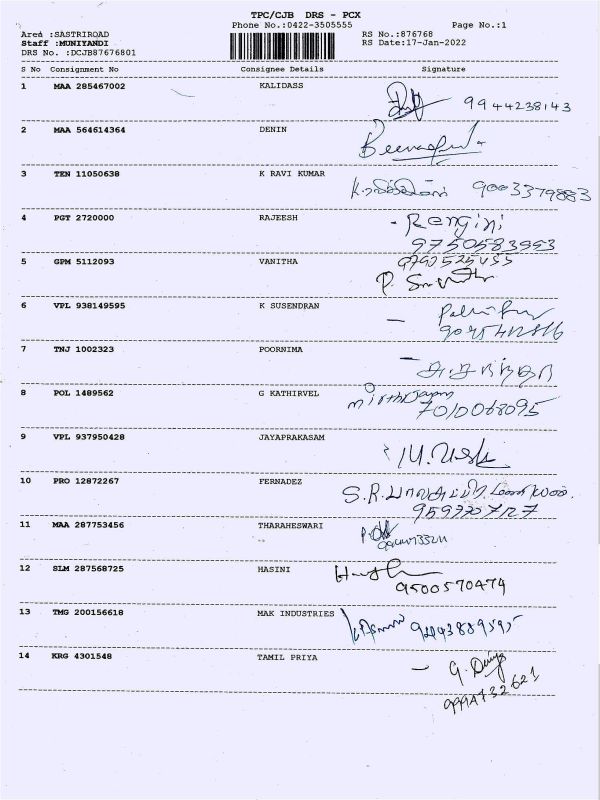 TPC/CJB DRS - PCX
Phone No.:0422-3505555 Page No.:1
Area :SASTRIROAD RS No.:876768
Staff :MUNIYANDI RS Date:17-Jan-2022
DRS No. :DCJB87676801
S No Consignment No Consignee Details Signature
1 MAA 285467002 KALIDASS
9944238143
2 MAA 564614364 DENIN
3 TEN 11050638 K RAVI KUMAR
9003379883
4 PGT 2720000 RAJEESH - Rengini
9750583993
5 GPM 5112093 VANITHA
6 VPL 938149595 K SUSENDRAN
7 TNJ 1002323 POORNIMA
8 POL 1489562 G KATHIRVEL
7010068095
9 VPL 937950428 JAYAPRAKASAM
10 PRO 12872267 FERNADEZ
11 MAA 287753456 THARAHESWARI
12 SLM 287568725 HASINI
9500570479
13 TMG 200156618 MAK INDUSTRIES
14 KRG 4301548 TAMIL PRIYA
9994732621